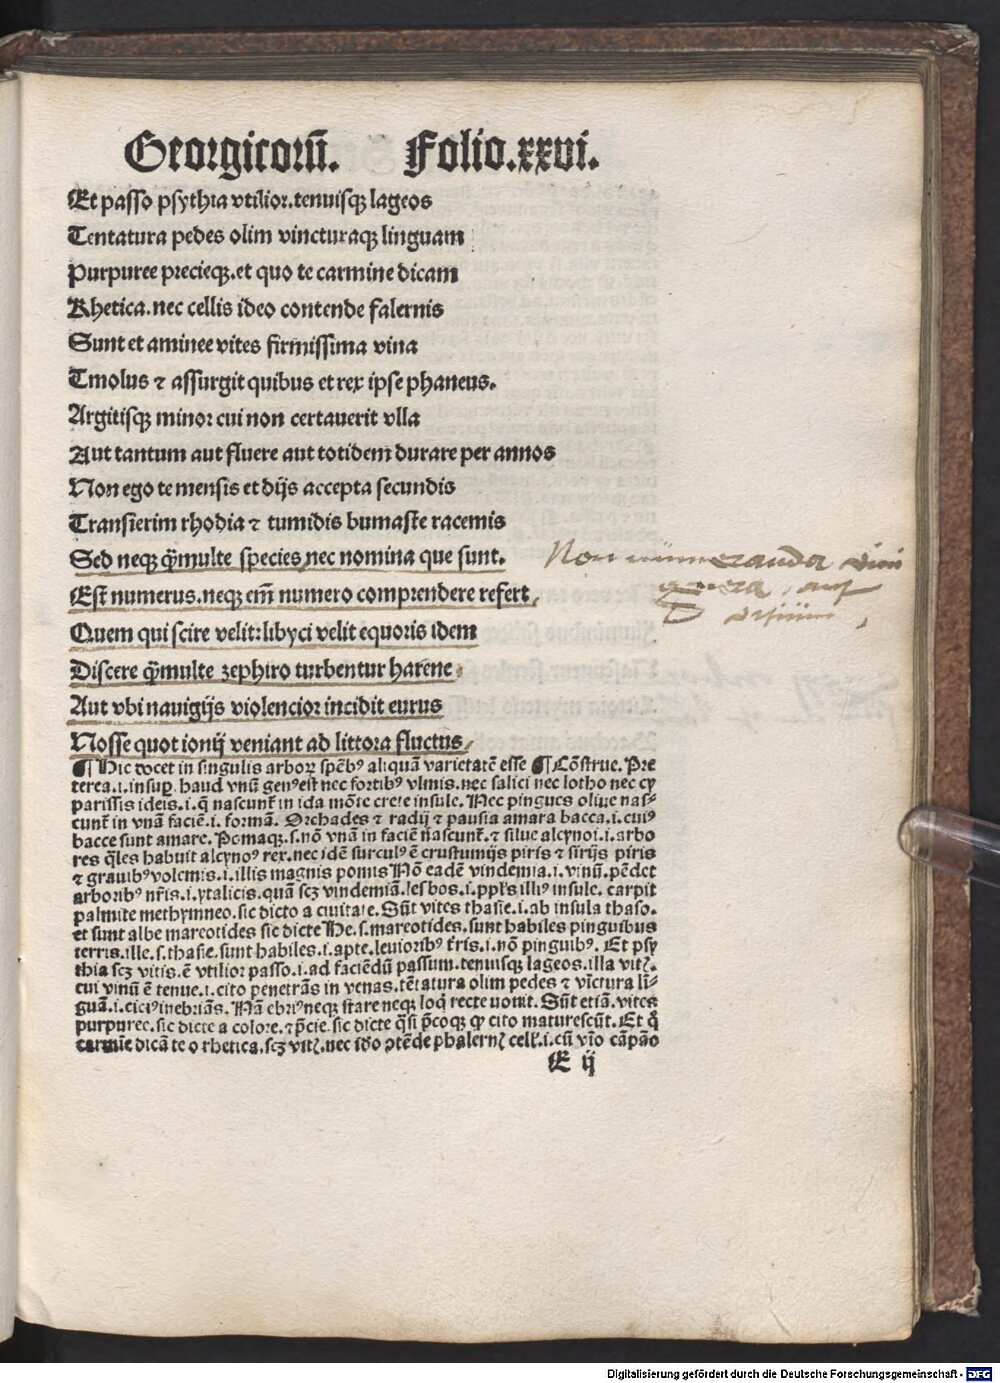 Georgicorū. Folio.xxvi.
Et passo psythia vtilior.tenuisqꝫ lageos
Tentatura pedes olim vincturaqꝫ linguam
Purpuree precieqꝫ.et quo te carmine dicam
Rhetica.nec cellis ideo contende falernis
Sunt et aminee vites firmissima vina
Tmolus ⁊ assurgit quibus et rex ipse phaneus.
Argitisqꝫ minor cui non certauerit vlla
Aut tantum aut fluere aut totidem durare per annos
Non ego te mensis et dijs accepta secundis
Transierim rhodia ⁊ tumidis bumaste racemis
Sed neqꝫ q̄multe species nec nomina que sunt.
Est numerus.neqꝫ em̄ numero comprendere refert
Quem qui scire velit:libyci velit equoris idem
Discere q̄multe zephiro turbentur harene
Aut vbi nauigijs violencior incidit eurus
Nosse quot ionij veniant ad littora fluctus
Non numeranda vini
genera, aut
¶ Hic docet in singulis arborꝝ spēbꝰ aliquā varietatē esse ¶ Cōstrue. Pre
terea.i.insuꝑ. haud vnū genꝰ est nec fortibꝰ vlmis.nec salici nec lotho nec cy
parissis ideis.i.q̄ nascunt̄ in ida mōte crete insule. Nec pingues oliue nas⸗
cunt̄ in vnā faciē.i. formā. Orchades ⁊ radij ⁊ pausia amara bacca.i.cuiꝰ
bacce sunt amare. Pomaqꝫ.s.nō vnā in faciē nascunt̄.⁊ silue alcynoi.i.arbo
res q̄les habuit alcynoꝰ rex.nec idē surculꝰ ē crustumijs piris ⁊ sirijs piris
⁊ grauibꝰ volemis.i.illis magnis pomis Nō eadē vindemia.i.vinū.pēdet
arboribꝰ nr̄is.i.ytalicis.quā scꝫ vindemiā.lesbos.i.ppl̄s illiꝰ insule. carpit
palmite methymneo.sic dicto a ciuitate. Sūt vites thasie.i.ab insula thaso.
et sunt albe mareotides sic dicte He.s.mareotides.sunt habiles pinguibus
terris.ille.s.thasie.sunt habiles.i.apte.leuioribꝰ t̄ris.i.nō pinguibꝰ. Et psy
thia scꝫ vitis.ē vtilior passo.i.ad faciēdū passum.tenuisqꝫ lageos.illa vitꝭ.
cui vinū ē tenue.i.cito penetrās in venas.tētatura olim pedes ⁊ vīctura lī⸗
guā.i.citiꝰ inebriās. Nā ebriꝰ neqꝫ stare neqꝫ loq̄ recte nouit. Sūt etiā.vites
purpuree.sic dicte a colore.⁊ p̄cie.sic dicte q̄si p̄coqꝫ ꝙ cito maturescūt. Et q̊
carmīe dicā te o rhetica.scꝫ vitꝭ.nec iđo ↄtēde phalernꝭ cell̄.i.cū vīo cāpāo
E ij
Digitalisierung gefördert durch die Deutsche Forschungsgemeinschaft - DFG